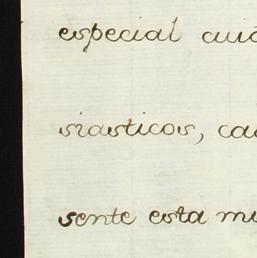 especial cuid
siasticos, ca
sente esta mu